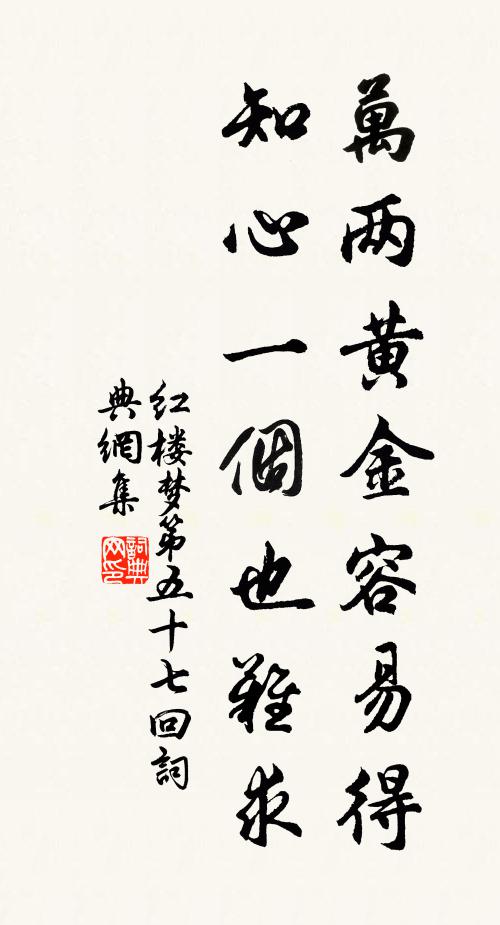 萬两黄金容易得
知心一個也難求
红楼梦第五十七回詞
典網集
詞典
网印